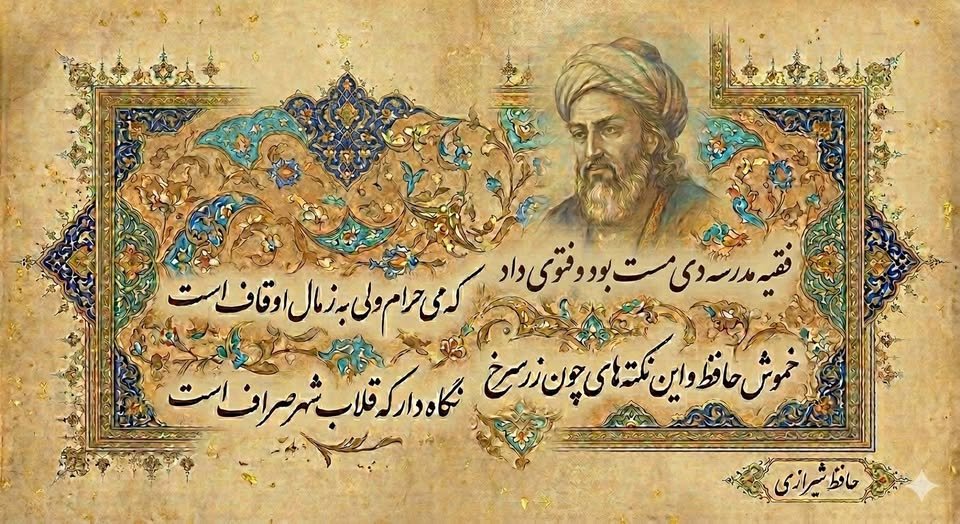 فقیه مدرسه دی مست بود و فتوی داد
که می حرام ولی به ز مال اوقاف است
خموش حافظ و این نکته های چون زر سرخ
نگاه دار که قلاب شهر صراف است
حافظ شیرازی